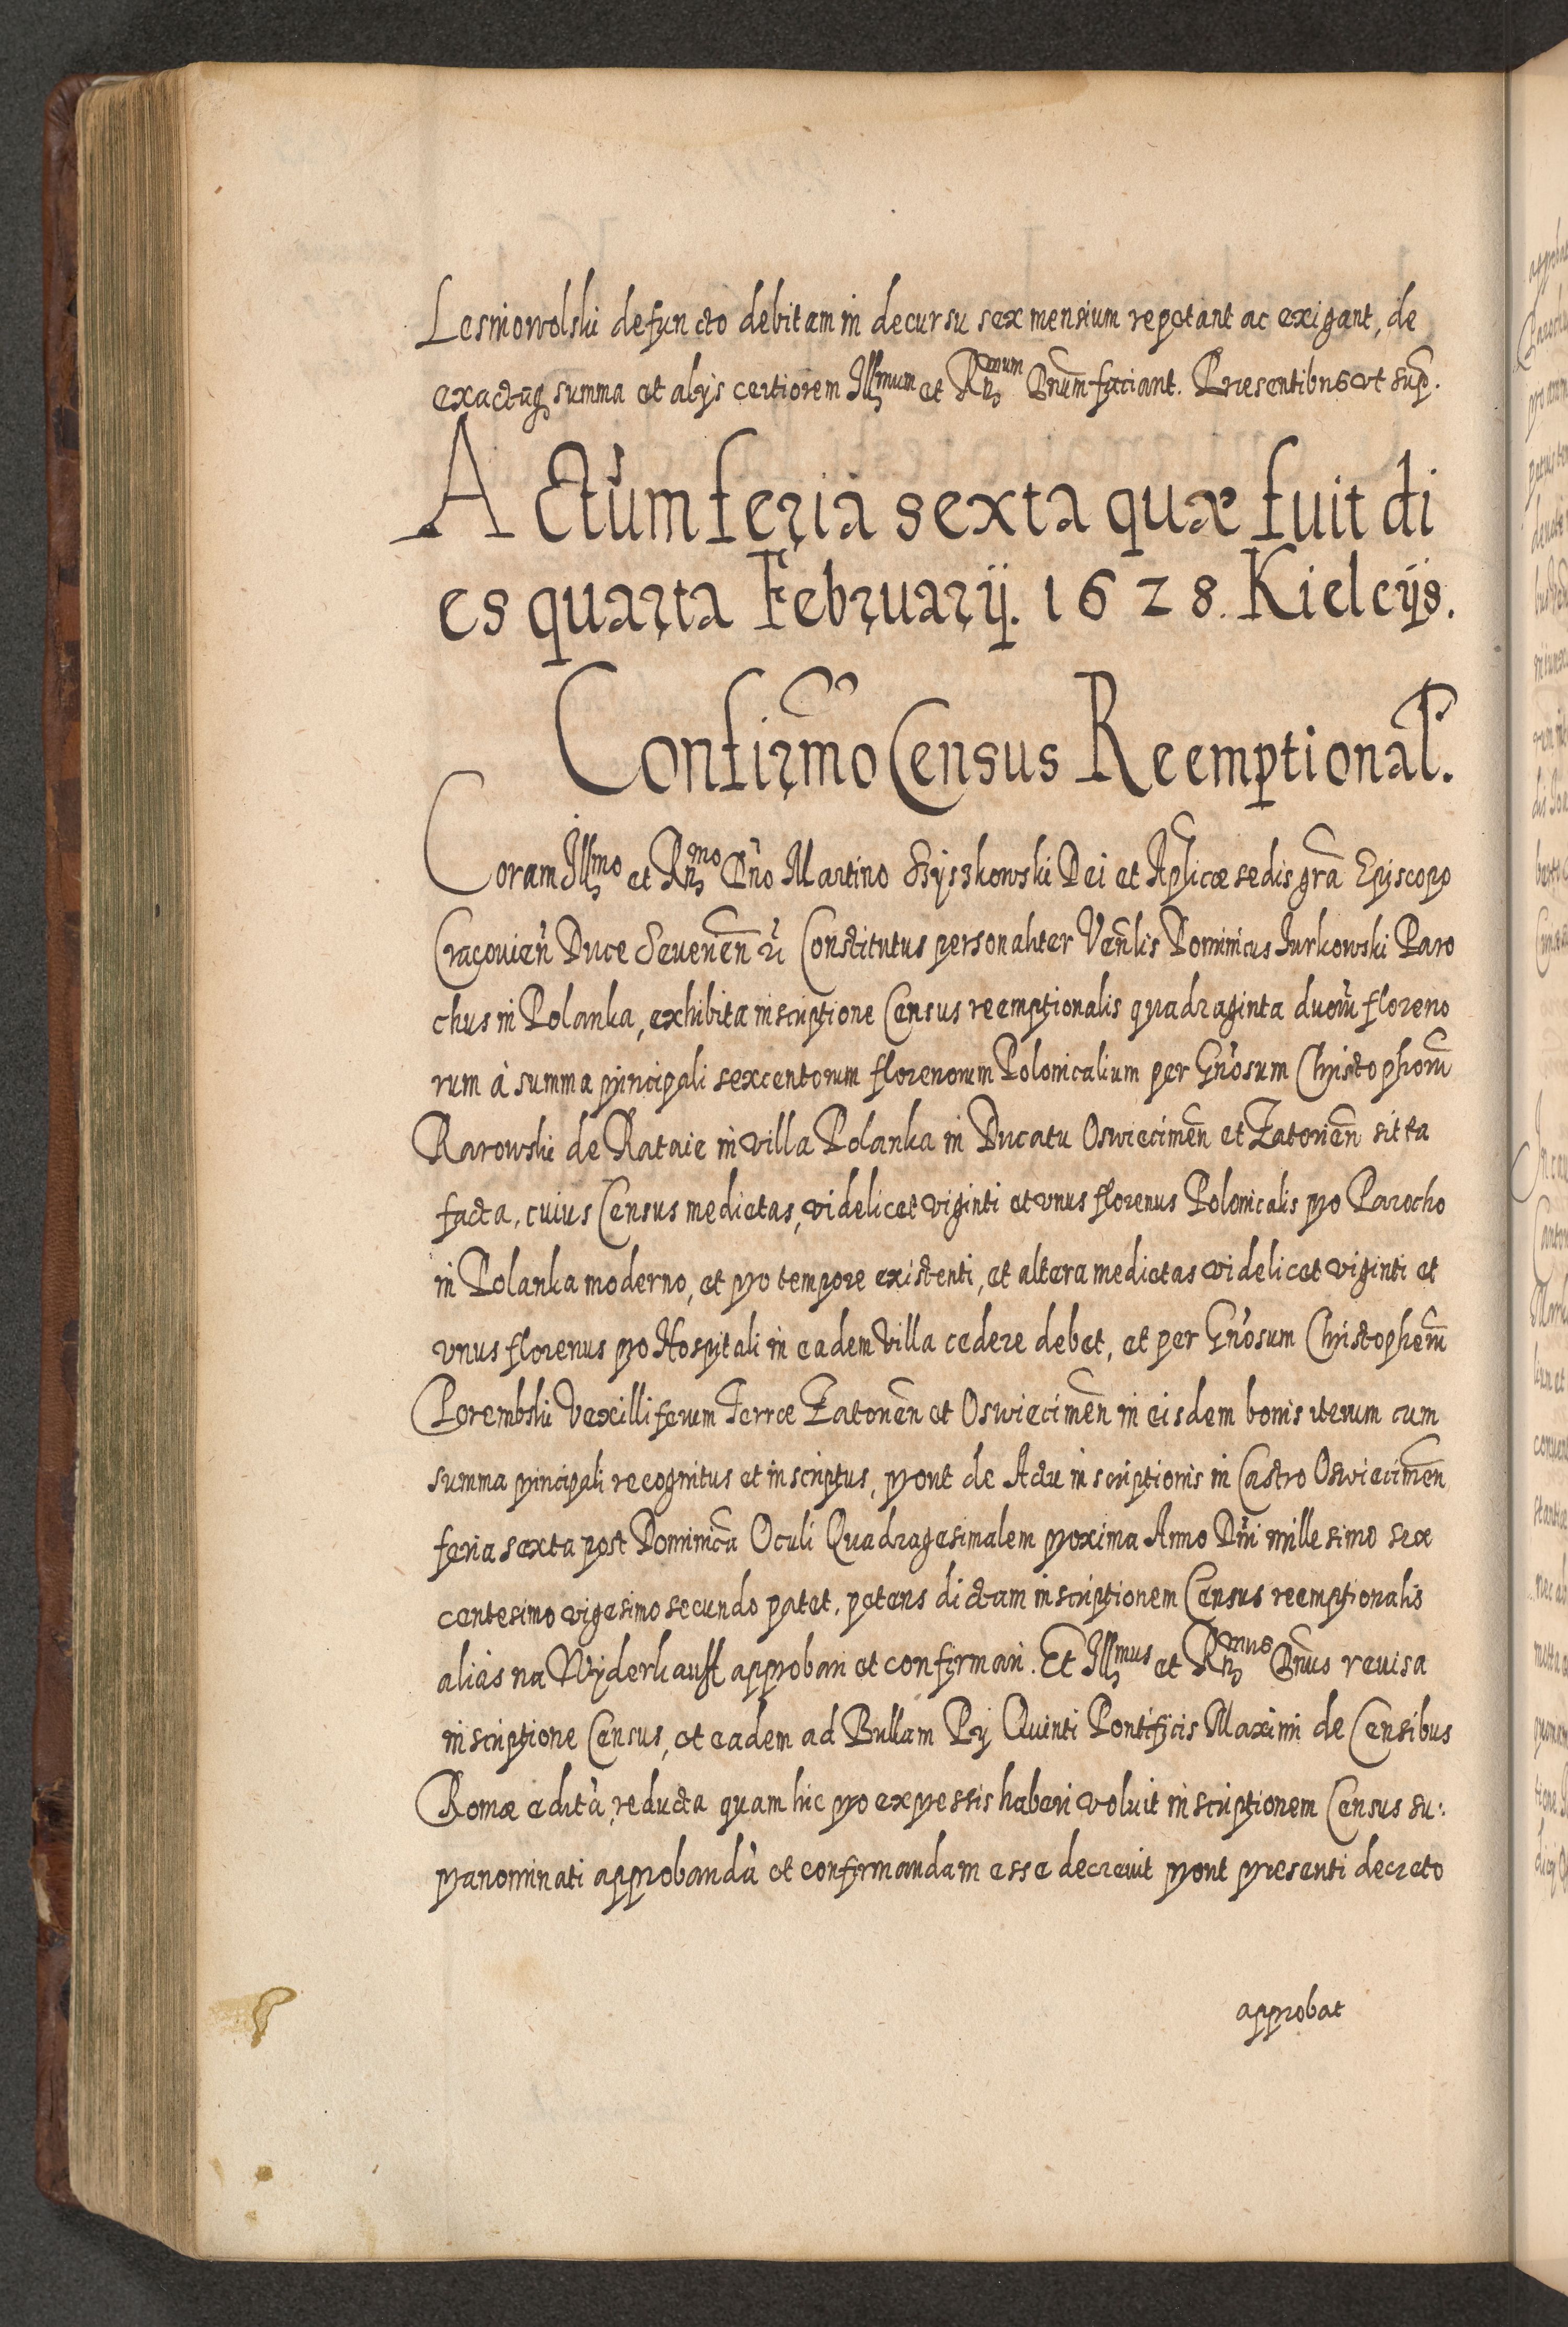 Lesniowolski defuncto debitam in decursu sex mensium repetant ac exigant, de
exactaq̃ summa et alijs certiorem Illmum et Rnmum Dnũm faciant. Præsentibus vt sup̃.
Actum feria sexta quæ fuit di
es quarta Februarij. 1628. Kielcijs.
Confirm̃o Census Reemptional.
Coram Illmo et Rnmo Dño Martino Szyszkowski Dei et Aplicæ sedis gr̃a Episcopo
Cracouieñ Duce Seuerień Constitutus personaliter Veñlis Dominicus Jurkowski Paro
chus in Polanka, exhibita inscriptione Census reemptionalis quadraginta duor̃u floreno
rum à summa principali sexcentorum florenorum Polonicalium per Gñosum Christophorũ
Rarowski de Rataie in villa Polanka in Ducatu Oswiecimeñ et Zatorieñ sitta
facta, cuius Census medietas, videlicet viginti et vnus florenus Polonicalis pro Parocho
in Polanka moderno, et pro tempore existenti, et altera medietas videlicet viginti et
vnus florenus pro Hospitali in eadem Villa cedere debet, et per Gñosum Christopherũ
Porembski Vexilliferum Terræ Zatorieñ et Oswiecimeñ in eisdem bonis iterum cum
summa principali recognitus et inscriptus, prout de Actu inscriptionis in Castro Oswiecimeñ
feria sexta post Dominicã Oculi Quadragesimalem proxima Anno Dñi millesimo sex
centesimo vigesimo secundo patet, petens dictam inscriptionem Census reemptionalis
aliàs na Wyderkauff approbari et confirmari. Et Illmus et Rnmus Dñus reuisa
inscriptione Census, et eadem ad Bullam Pij Quinti Pontificis Maximi de Censibus
Romæ editã, reducta quam hic pro expressis haberi voluit inscriptionem Census su:
pranominati approbandã et confirmandam esse decreuit prout præsenti decreto
approbat